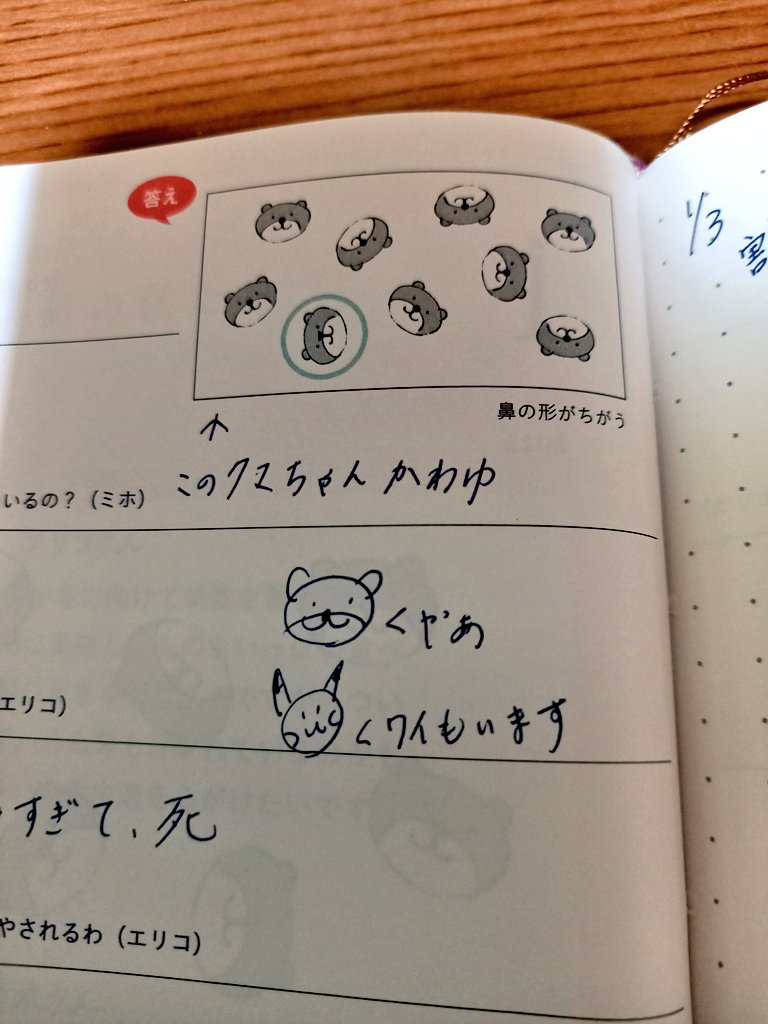 答え
鼻の形がちがう
↑
このクマちゃん かわゆ
いるの？（ミホ）
くやあ
エリコ）
くワイもいます
すぎて、死
やされるわ（エリコ）
1/3
害